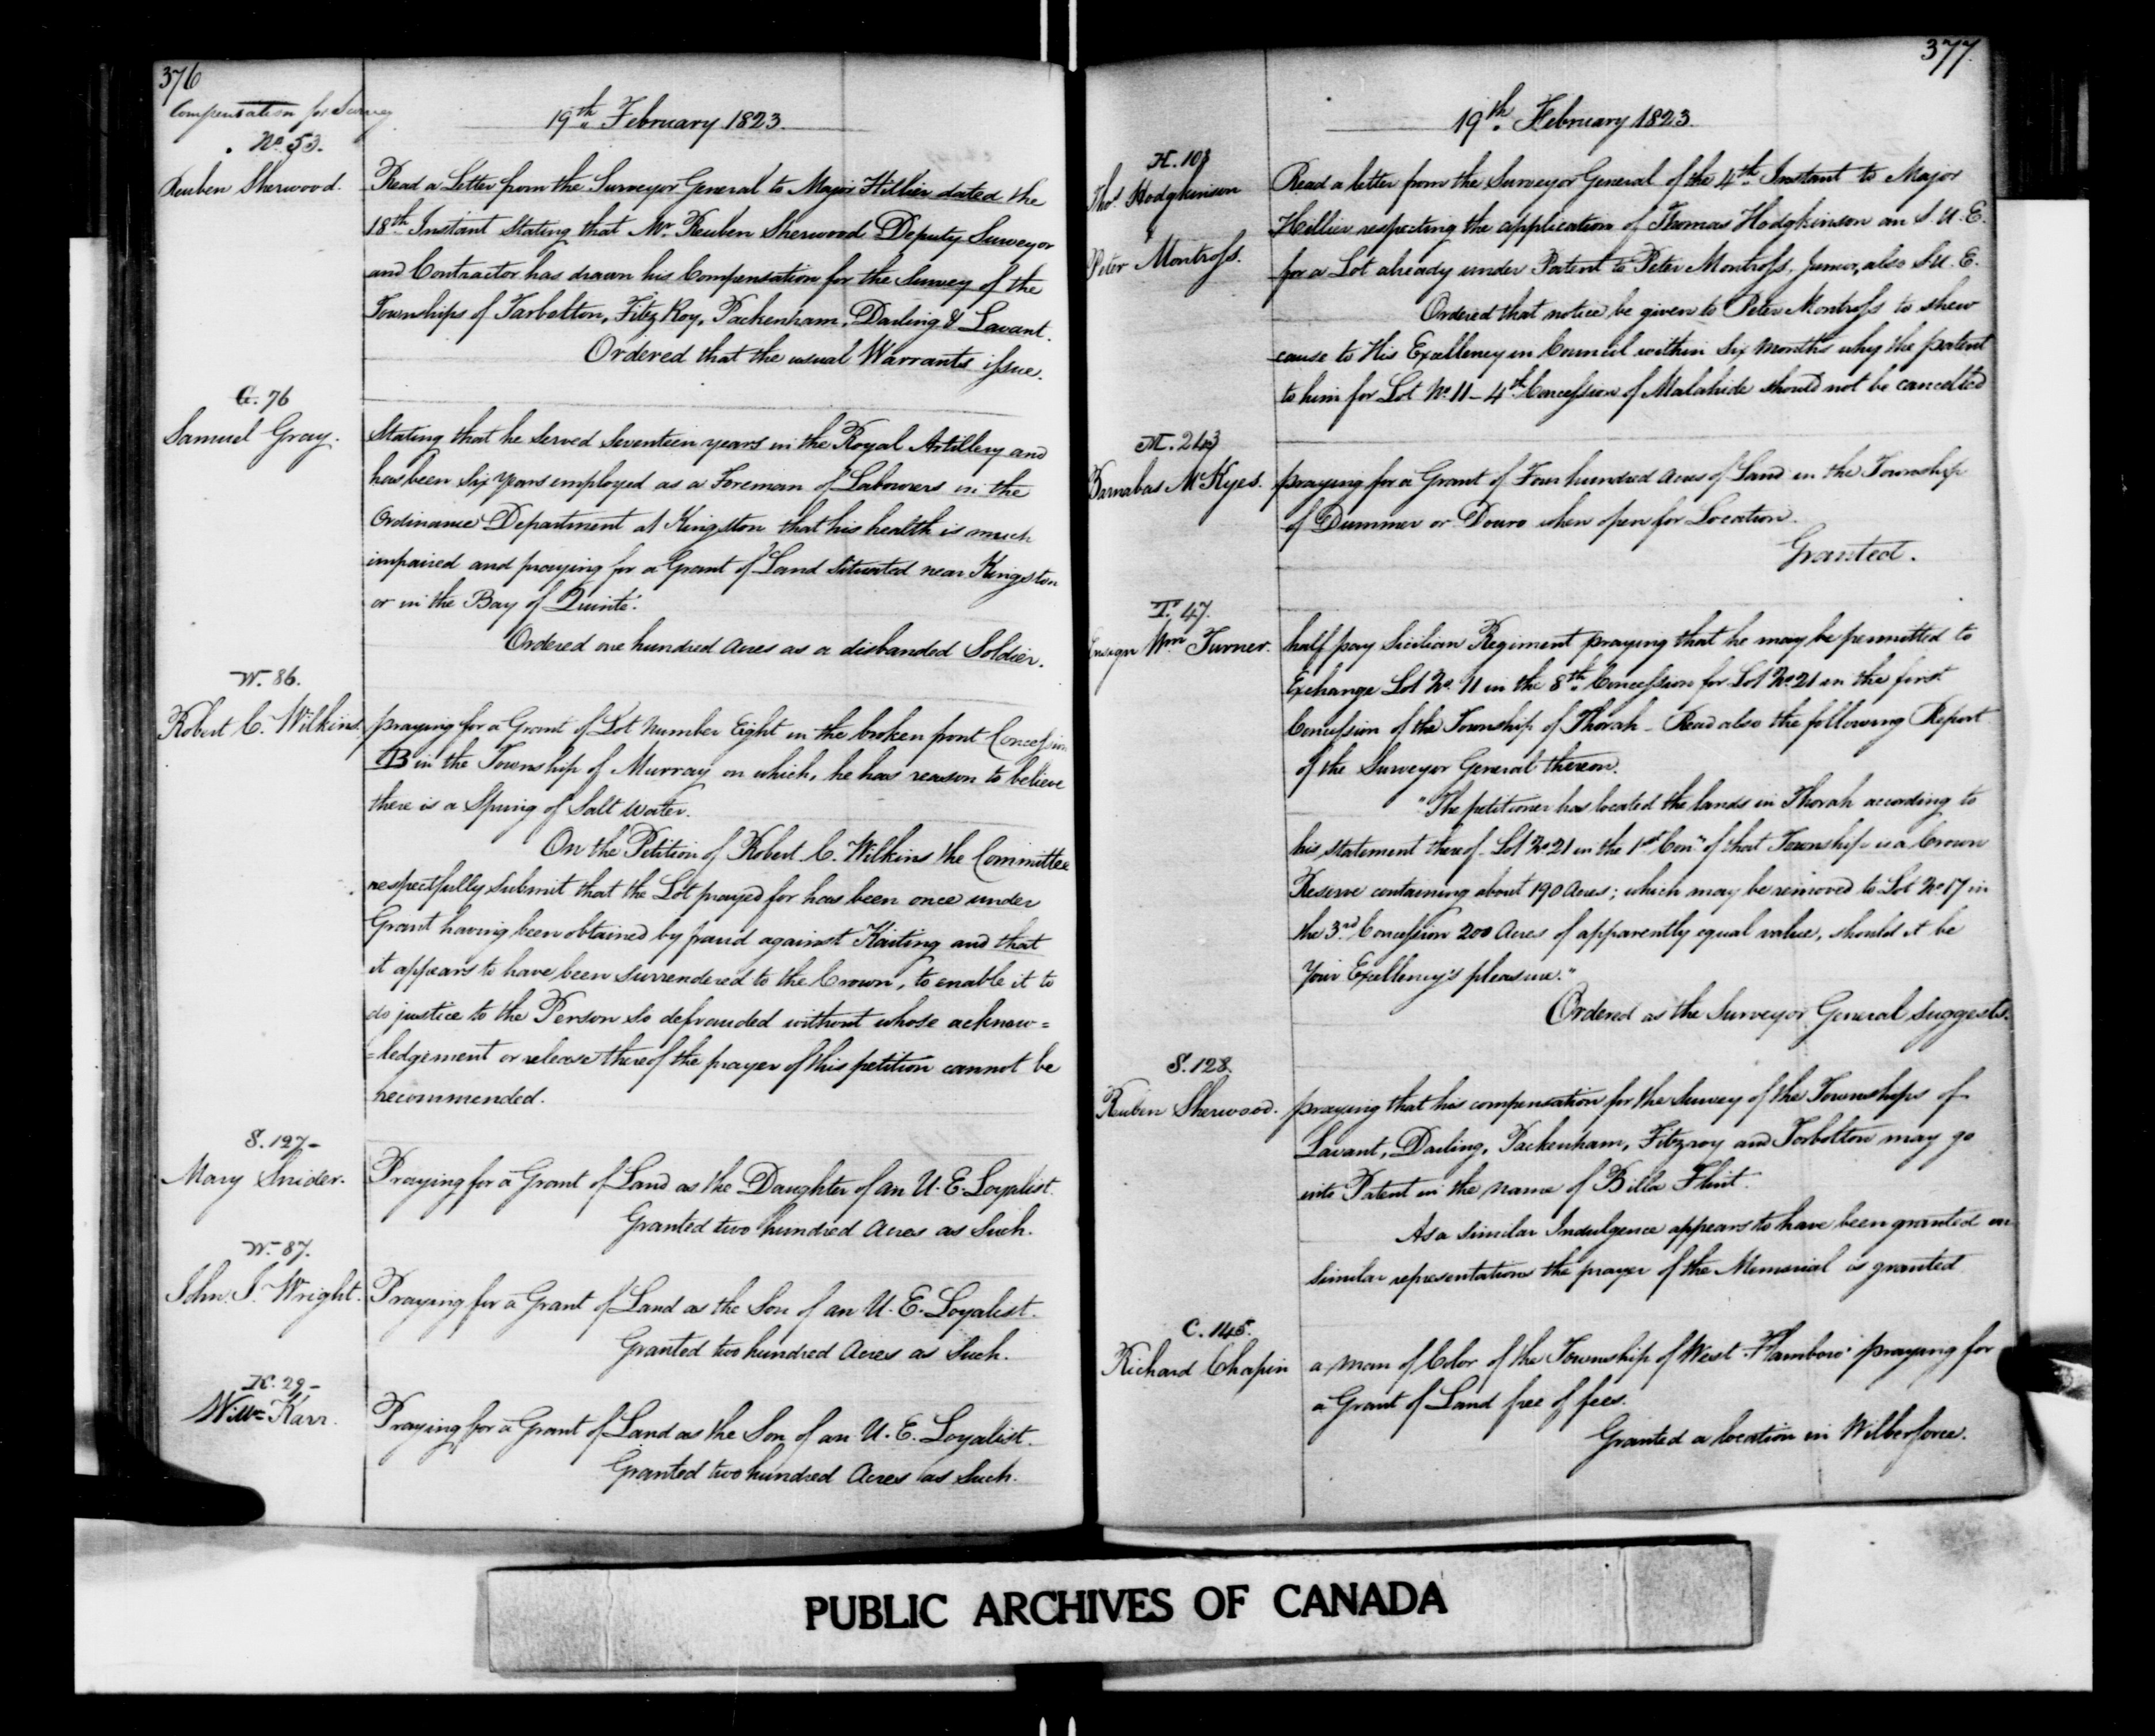 376
Compensation for Survey
No. 53.
19th February 1823.
Reuben Sherwood.
Read a Letter from the Surveyor General to Major Hillier dated the
18th Instant Stating that Mr. Reuben Sherwood Deputy Surveyor
and Contractor has drawn his Compensation for the Survey of the
Townships of Tarbolton, Fitz Roy, Packenham, Darling & Lavant.
Ordered that the usual Warrants issue.
G. 76
Samuel Gray.
Stating that he Served Seventeen years in the Royal Artillery and
has been Six Years employed as a Foreman of Labourers in the
Ordinance Department at Kingston that his health is much
impaired and praying for a Grant of Land Situated near Kingston
or in the Bay of Quinté.
Ordered one hundred Acres as a disbanded Soldier.
W. 86.
Robert C. Wilkins.
praying for a Grant of Lot Number Eight in the broken front Concession
B in the Township of Murray on which, he has reason to believe
there is a Spring of Salt Water.
On the Petition of Robert C. Wilkins the Committee
respectfully Submit that the Lot prayed for has been once under
Grant having been obtained by fraud against Keating and that
it appears to have been Surrendered to the Crown, to enable it to
do justice to the Person so defrauded without whose acknow=
=ledgement or release thereof the prayer of this petition cannot be
recommended.
S. 127-
Mary Snider.
Praying for a Grant of Land as the Daughter of an U. E. Loyalist.
Granted two hundred Acres as Such.
W. 87.
John S. Wright.
Praying for a Grant of Land as the Son of an U. E. Loyalist.
Granted two hundred Acres as Such.
K. 29-
Willm Karr.
Praying for a Grant of Land as the Son of an U. E. Loyalist.
Granted two hundred Acres as Such.
377.
19th February 1823.
H. 108
Thos. Hodgkinson
&
Peter Montross.
Read a letter from the Surveyor General of the 4th Instant to Major
Hillier respecting the application of Thomas Hodgkinson an S. U. E.
for a Lot already under Patent to Peter Montross, Junior, also S. U. E.
Ordered that notice be given to Peter Montross to shew
cause to His Excellency in Council within Six Months why the patent
to him for Lot No. 11 - 4th Concession of Malahide should not be cancelled
M. 243
Barnabas McKyes.
praying for a Grant of Four hundred Acres of Land in the Township
of Dummer or Douro when open for Location.
Granted.
T. 47.
Ensign Wm Turner.
half pay Sicilian Regiment praying that he may be permitted to
Exchange Lot No. 11 in the 8th Concession for Lot No 21 in the first
Concession of the Township of Thorah - Read also the following Report
of the Surveyor General thereon.
"The petitioner has located the lands in Thorah according to
his statement thereof. Lot No 21 in the 1st Con" of that Township is a Crown
Reserve containing about 190 Acres; which may be removed to Lot No 17 in
the 3rd Concession 200 Acres of apparently equal value, should it be
Your Excellency's pleasure."
Ordered as the Surveyor General Suggests.
S. 128.
Reuben Sherwood.
praying that his compensation for the Survey of the Townships of
Lavant, Darling, Packenham, Fitzroy and Torbolton may go
into Patent in the name of Billa Flint.
As a similar Indulgence appears to have been granted on
similar representations the prayer of the Memorial is granted
C. 145.
Richard Chapin
a man of Color of the Township of West Flamboro' praying for
a Grant of Land free of fees.
Granted a location in Wilberforce.
PUBLIC ARCHIVES OF CANADA